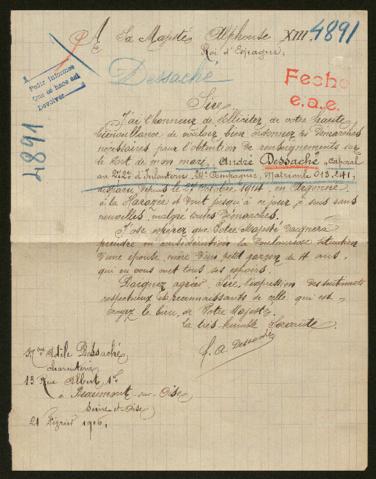 A Sa Majesté Alphonse XIII
Roi d'Espagne,
4891
Pedir informes
Que se hace así
Devolver
Dessaché
Fecho
e.a.e.
4891
Sire
J'ai l'honneur de solliciter de votre haute
bienveillance de vouloir bien ordonner les démarches
nécessaires pour l'obtention de renseignements sur
le sort de mon mari, André Dessaché, caporal
au d'Infanterie, Compagnie, Matricule 013.241,
disparu depuis le 27 Octobre 1914, en Argonne
à la Harazée et dont jusqu'à ce jour je suis sans
nouvelles, malgré toutes démarches.
J'ose espérer que Votre Majesté daignera
prendre en considération la douloureuse situation
d'une épouse, mère d'un petit garçon de 4 ans,
qui en vous met tous ses espoirs.
Daignez agréer Sire, l'expression des sentiments
respectueux et reconnaissants de celle qui est
croyez le bien, de Votre Majesté
la très humble Servante
f. A. Dessaché
Mme Adèle Dessaché
charcuterie
13 Rue Albert 1er
à Beaumont-sur-Oise
Seine-et-Oise
21 Février 1916.